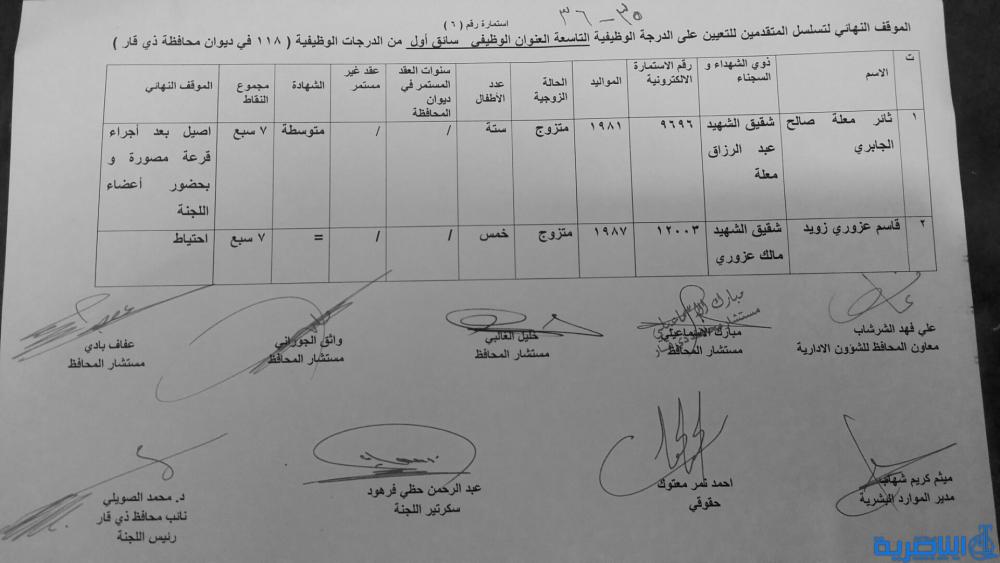 ٣٥ - ٣٦
استمارة رقم ( ٦ )
الموقف النهائي لتسلسل المتقدمين للتعيين على الدرجة الوظيفية التاسعة العنوان الوظيفي سائق أول من الدرجات الوظيفية ( ١١٨ في ديوان محافظة ذي قار )
ت
الاسم
ذوي الشهداء و
السجناء
رقم الاستمارة
الالكترونية
المواليد
الحالة
الزوجية
عدد
الأطفال
سنوات العقد
المستمر في
ديوان
المحافظة
عقد غير
مستمر
الشهادة
مجموع
النقاط
الموقف النهائي
١
ثائر معلة صالح
الجابري
شقيق الشهيد
عبد الرزاق
معلة
٩٦٩٦
١٩٨١
متزوج
ستة
/
/
متوسطة
٧ سبع
اصيل بعد أجراء
قرعة مصورة و
بحضور أعضاء
اللجنة
٢
قاسم عزوري زويد
شقيق الشهيد
مالك عزوري
١٢٠٠٣
١٩٨٧
متزوج
خمس
/
/
=
٧ سبع
احتياط
علي فهد الشرشاب
معاون المحافظ للشؤون الادارية
مبارك الاسماعيلي
مستشار المحافظ
خليل الغالبي
مستشار المحافظ
واثق الجوراني
مستشار المحافظ
عفاف بادي
مستشار المحافظ
ميثم كريم شهاب
مدير الموارد البشرية
احمد نمر معتوك
حقوقي
عبد الرحمن حظي فرهود
سكرتير اللجنة
د. محمد الصويلي
نائب محافظ ذي قار
رئيس اللجنة
الناصرية